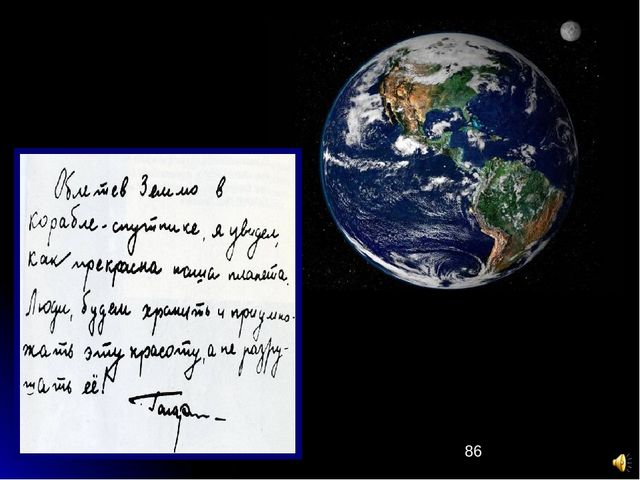 Облетев Землю в
корабле-спутнике, я увидел,
как прекрасна наша планета.
Люди, будем хранить и приумно-
жать эту красоту, а не разру-
шать её!
Гагарин
86